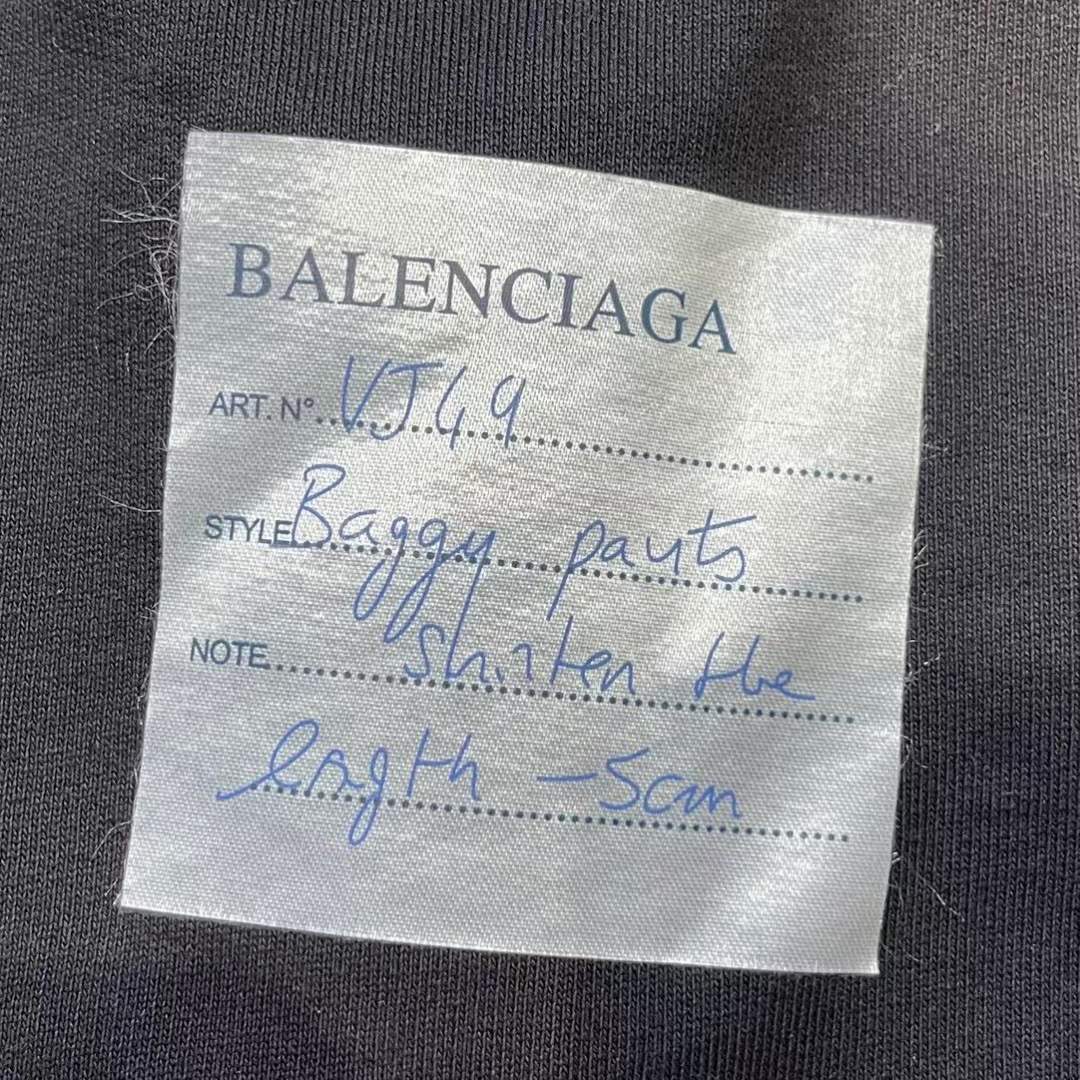 BALENCIAGA
ART. N° VJ49
STYLE Baggy pants
NOTE Shorten the
length -5cm